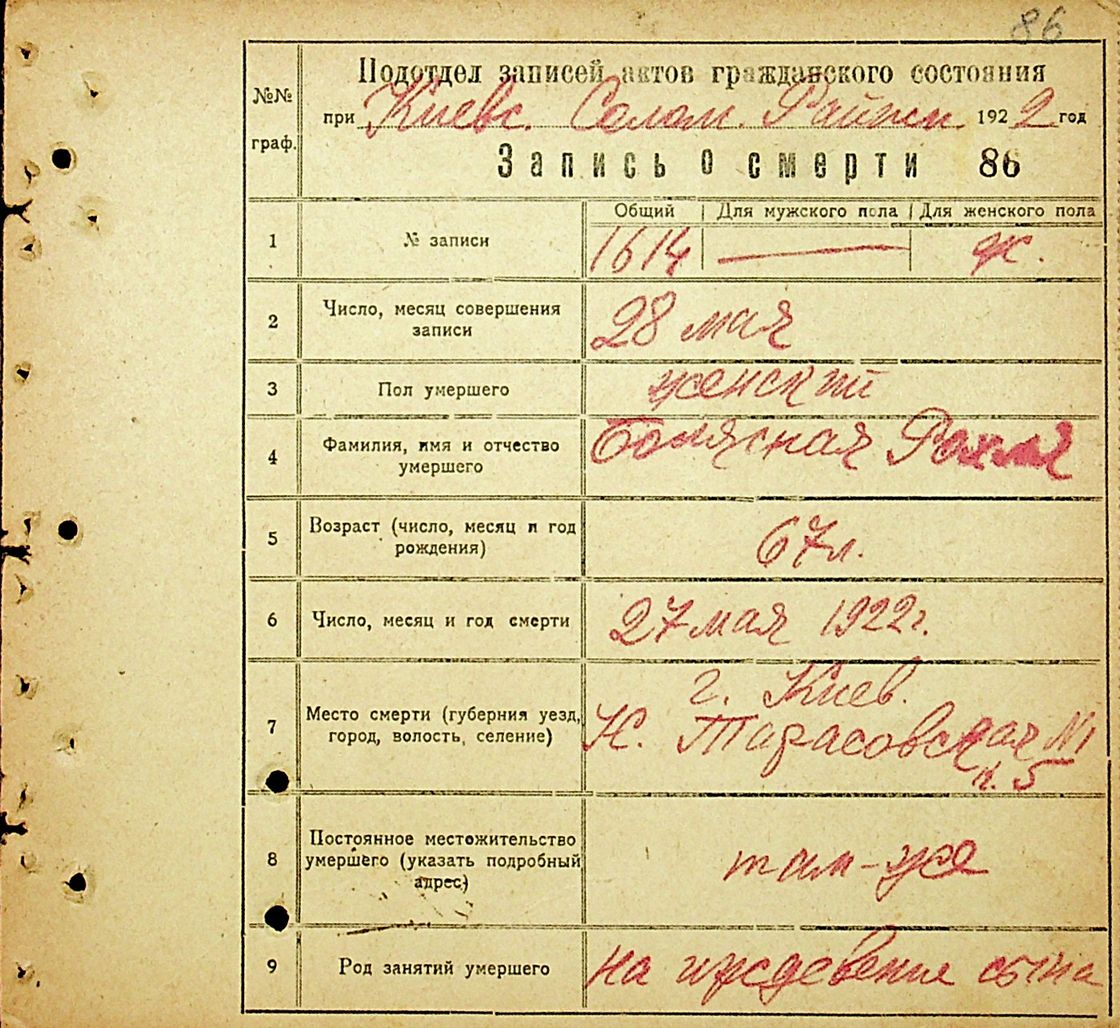 86
№№ граф.
Подотдел записей актов гражданского состояния
при Киевс. Солом. Райжи 1922 год
Запись о смерти 86
Общий | Для мужского пола | Для женского пола
1 № записи 1614 — ж.
2 Число, месяц совершения
записи
28 мая
3 Пол умершего женский
4 Фамилия, имя и отчество
умершего
Рохля
5 Возраст (число, месяц и год
рождения)
67 л.
6 Число, месяц и год смерти 27 мая 1922 г.
7 Место смерти (губерния уезд,
город, волость, селение)
г. Киев.
Н. Тарасовская №1
к. 5
8 Постоянное местожительство
умершего (указать подробный
адрес)
там-же
9 Род занятий умершего на иждевение сына